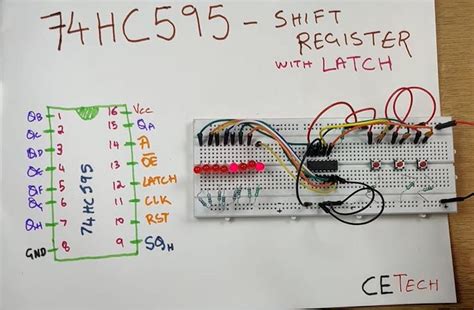 74HC595 - SHIFT
REGISTER
WITH LATCH
QB 1 16 Vcc
QC 2 15 QA
QD 3 14 A
QE 4 13 OE
QF 5 12 LATCH
6 11 CLK
QH 7 10 RST
GND 8 9 SQH
74HC595
CETech